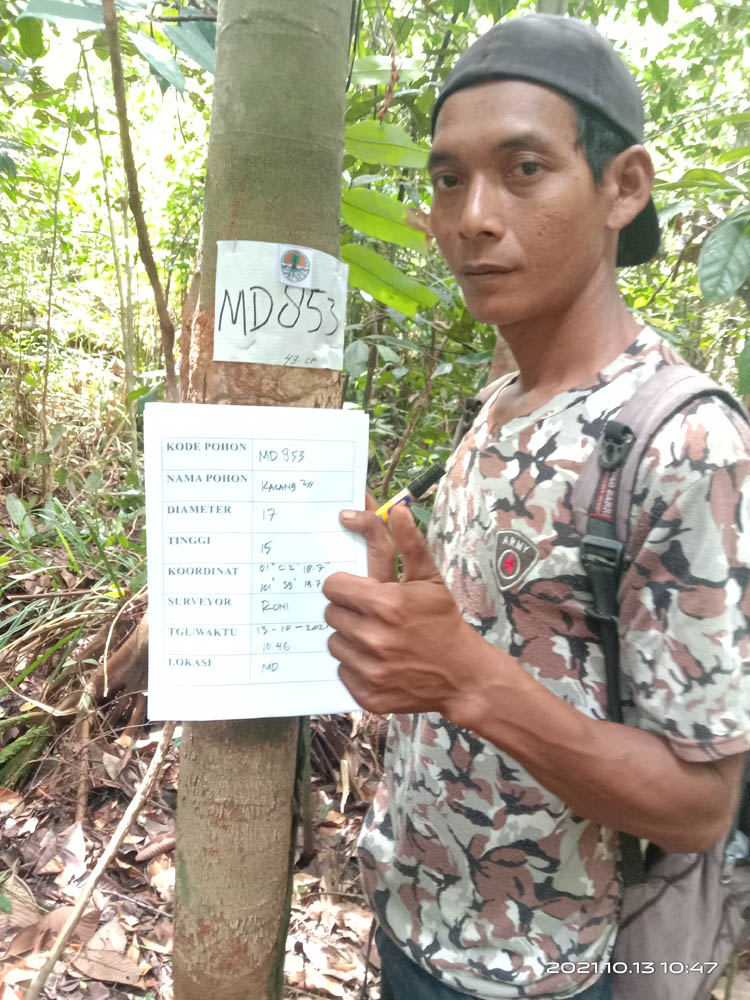 MD853
43 cm
KODE POHON MD 853
NAMA POHON
DIAMETER 17
TINGGI 15
KOORDINAT 01° 02' 18.7"
101° 13.7
SURVEYOR RONI
TGL/WAKTU 13-10-202
10.46
LOKASI MD
ARMY
2021.10.13 10:47